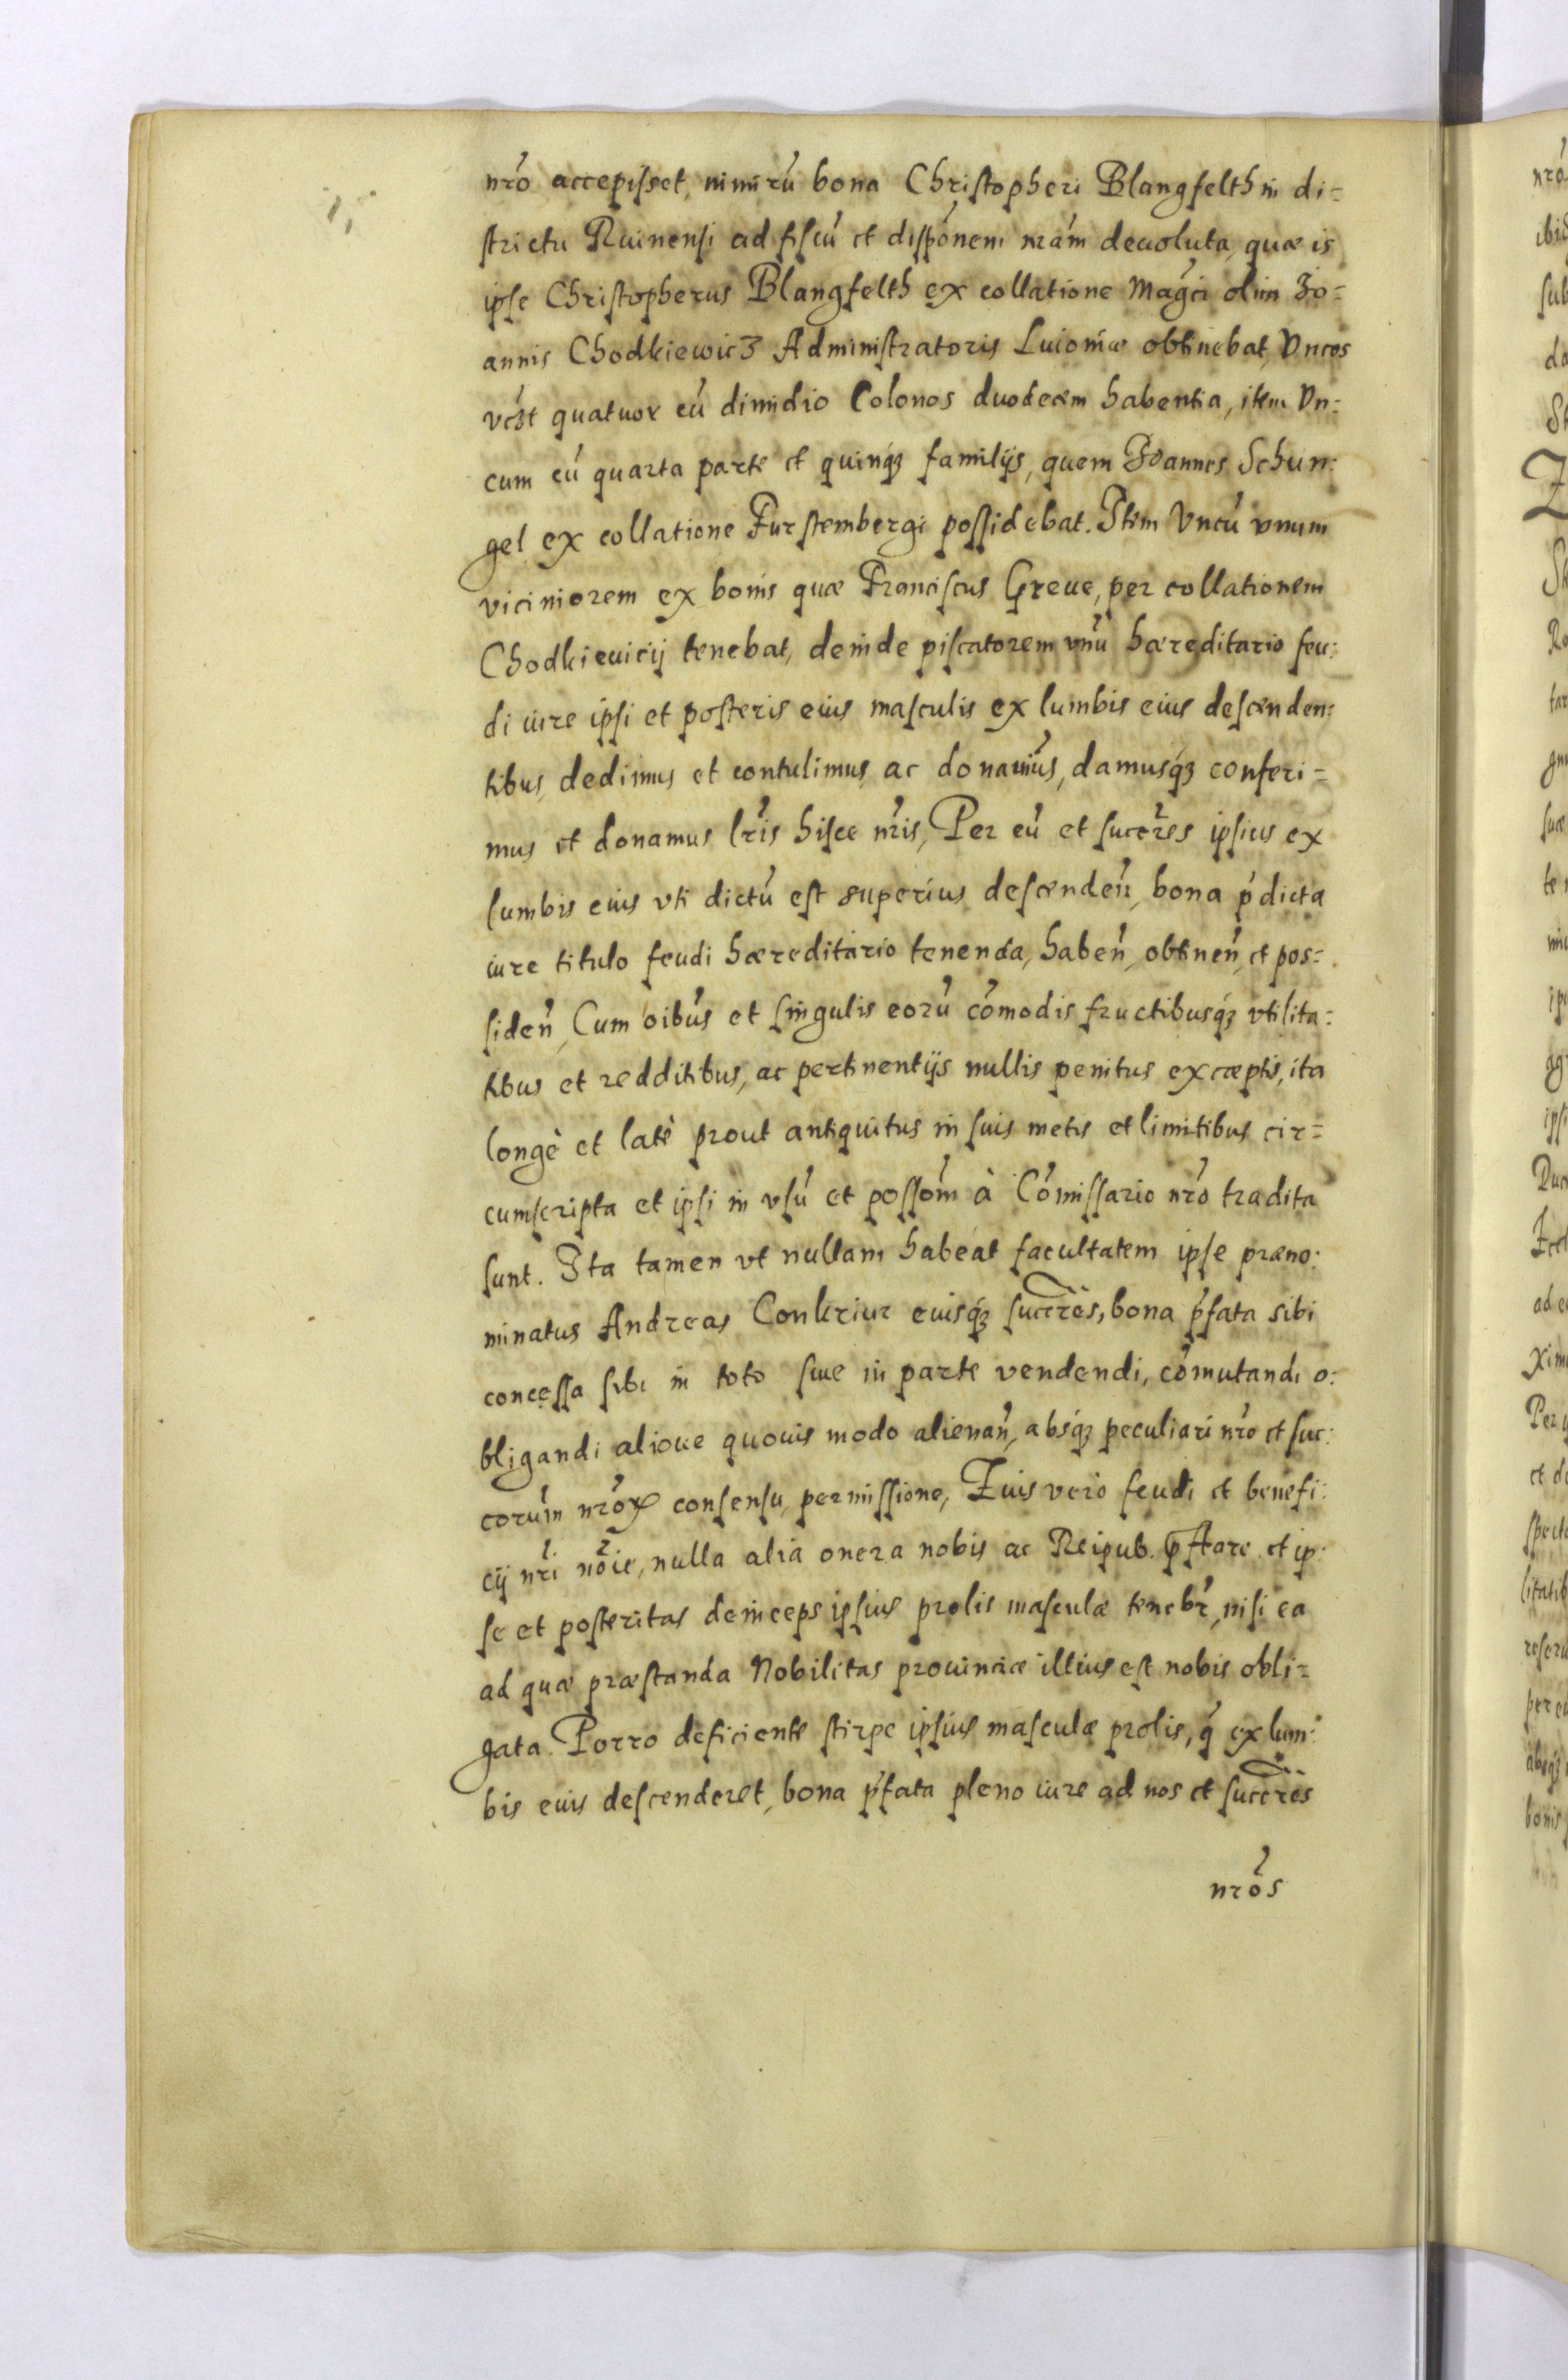 nrõ accepisset, nimirũ bona Christopheri Blangfelth in di=
strictu Ruinensi ad fiscũ et dispõnem nrãm deuoluta, quæ is
ipse Christopherus Blangfelth ex collatione Magci olim Jo=
annis Chodkiewicz Administratoris Liuoniæ obtinebat, Vncos
vczt quatuor cũ dimidio Colonos duodecem habentia, item Vn:
cum cũ quarta parte et quinqz familijs, quem Joannes Schun:
gel ex collatione Furstembergi possidebat. Item Vncũ vnum
viciniorem ex bonis quæ Franciscus Greue, per collationem
Chodkieuicij tenebat, deinde piscatorem vnũ hæreditario feu:
di iure ipsi et posteris eius masculis ex lumbis eius descenden:
tibus, dedimus et contulimus, ac donauim̃us, damusqz conferi=
mus et donamus lrĩs hisce nrĩs, Per eũ et succr̃es ipsius ex
lumbis eius vti dictũ est superius descendeñ, bona p̃dicta
iure titulo feudi hæreditario tenenda, habeñ, obtineñ, et pos=
sideñ, Cum oibũs et singulis eorũ cõmodis fructibusqz vtilita:
tibus et redditibus, ac pertinentijs nullis penitus excæptis, ita
longè et latè prout antiquitus in suis metis et limitibus cir=
cumscripta et ipsi in vsũ et possom̃ à Cõmissario nrõ tradita
sunt. Ita tamen vt nullam habeat facultatem ipse præno:
minatus Andreas Conkriur eiusqz succr̃es, bona p̃fata sibi
concessa sibi in toto siue in parte vendendi, cõmutandi o:
bligandi alioue quouis modo alienañ, absqz peculiari nrõ et suc:
corum̃ nrõꝝ consensu, permissione, Iuis vero feudi et benefi:
cij nrĩ nõie, nulla alia onera nobis ac Reipub. p̃stare et ip:
se et posteritas deinceps ipsius prolis masculæ tenebr̃, nisi ea
ad quæ præstanda Nobilitas prouinciæ illius est nobis obli=
gata. Porro deficiente stirpe ipsius masculæ prolis, q̃ ex lum:
bis eius descenderet, bona p̃fata pleno iure ad nos et succr̃es
nrõs